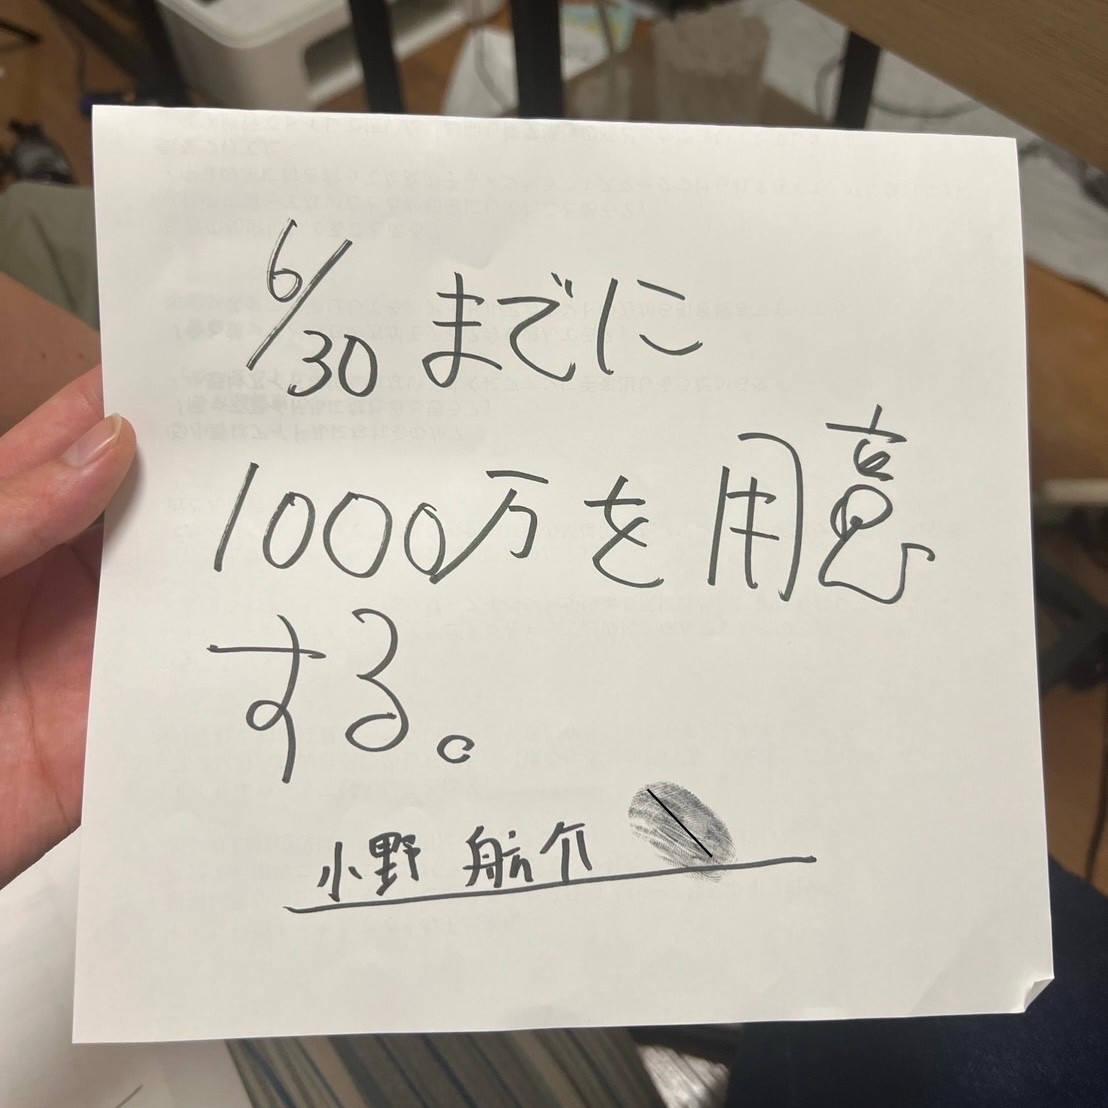 6/30 までに
1000万を用意
する。
小野 航介